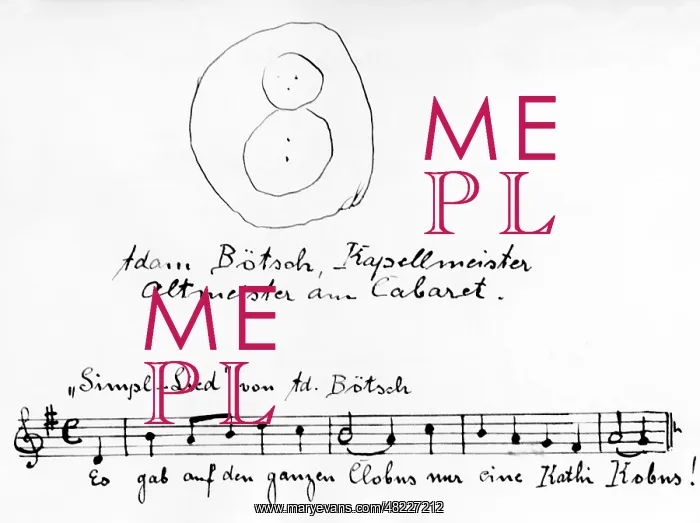 ME
PL
Adam Bötsch, Kapellmeister
Altmeister am Cabaret.
ME
PL
„Simpl-Lied" von Ad. Bötsch
Es gab auf den ganzen Clobus nur eine Kathi Kobus!
www.maryevans.com/48227212